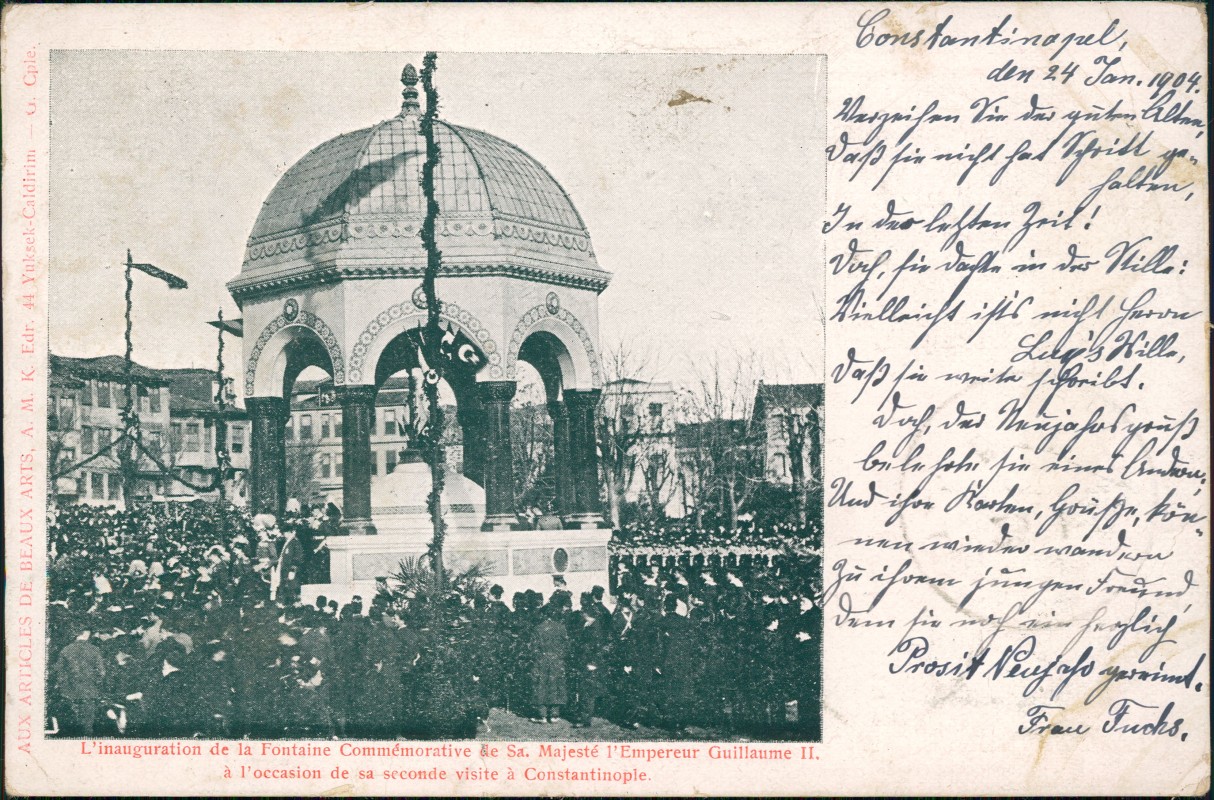 AUX ARTICLES DE BEAUX ARTS, A. M. K. Edr. 44 Yuksek-Caldirim — G. Cple.
L'inauguration de la Fontaine Commémorative de Sa. Majesté l'Empereur Guillaume II.
à l'occasion de sa seconde visite à Constantinople.
Constantinopel,
den 24 Jan. 1904.
Verzeihen Sie der guten Alten,
Daß sie nicht hat Schritt ge-
halten,
In der letzten Zeit!
Doch, sie dachte in der Stille:
Vielleicht ist's nicht Herrn
Wille,
Daß sie weiter schreibt.
Doch, der Neujahrsgruß
belehrte sie eines Andern,
Und ihre Karten, Grüße, kön-
nen wieder wandern
Zu ihrem jungen Freund,
Dem sie noch ein herzlich
Prosit Neujahr gereimt.
Frau Fuchs.